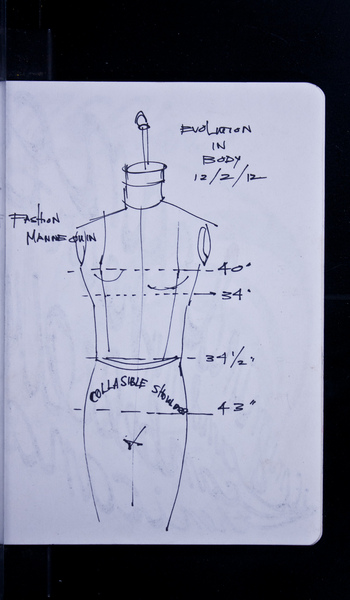 EVOLUTION
IN
BODY
12/2/12
FASHION
MANNEQUIN
40"
34"
34 1/2"
COLLASIBLE SHOULDER
43"